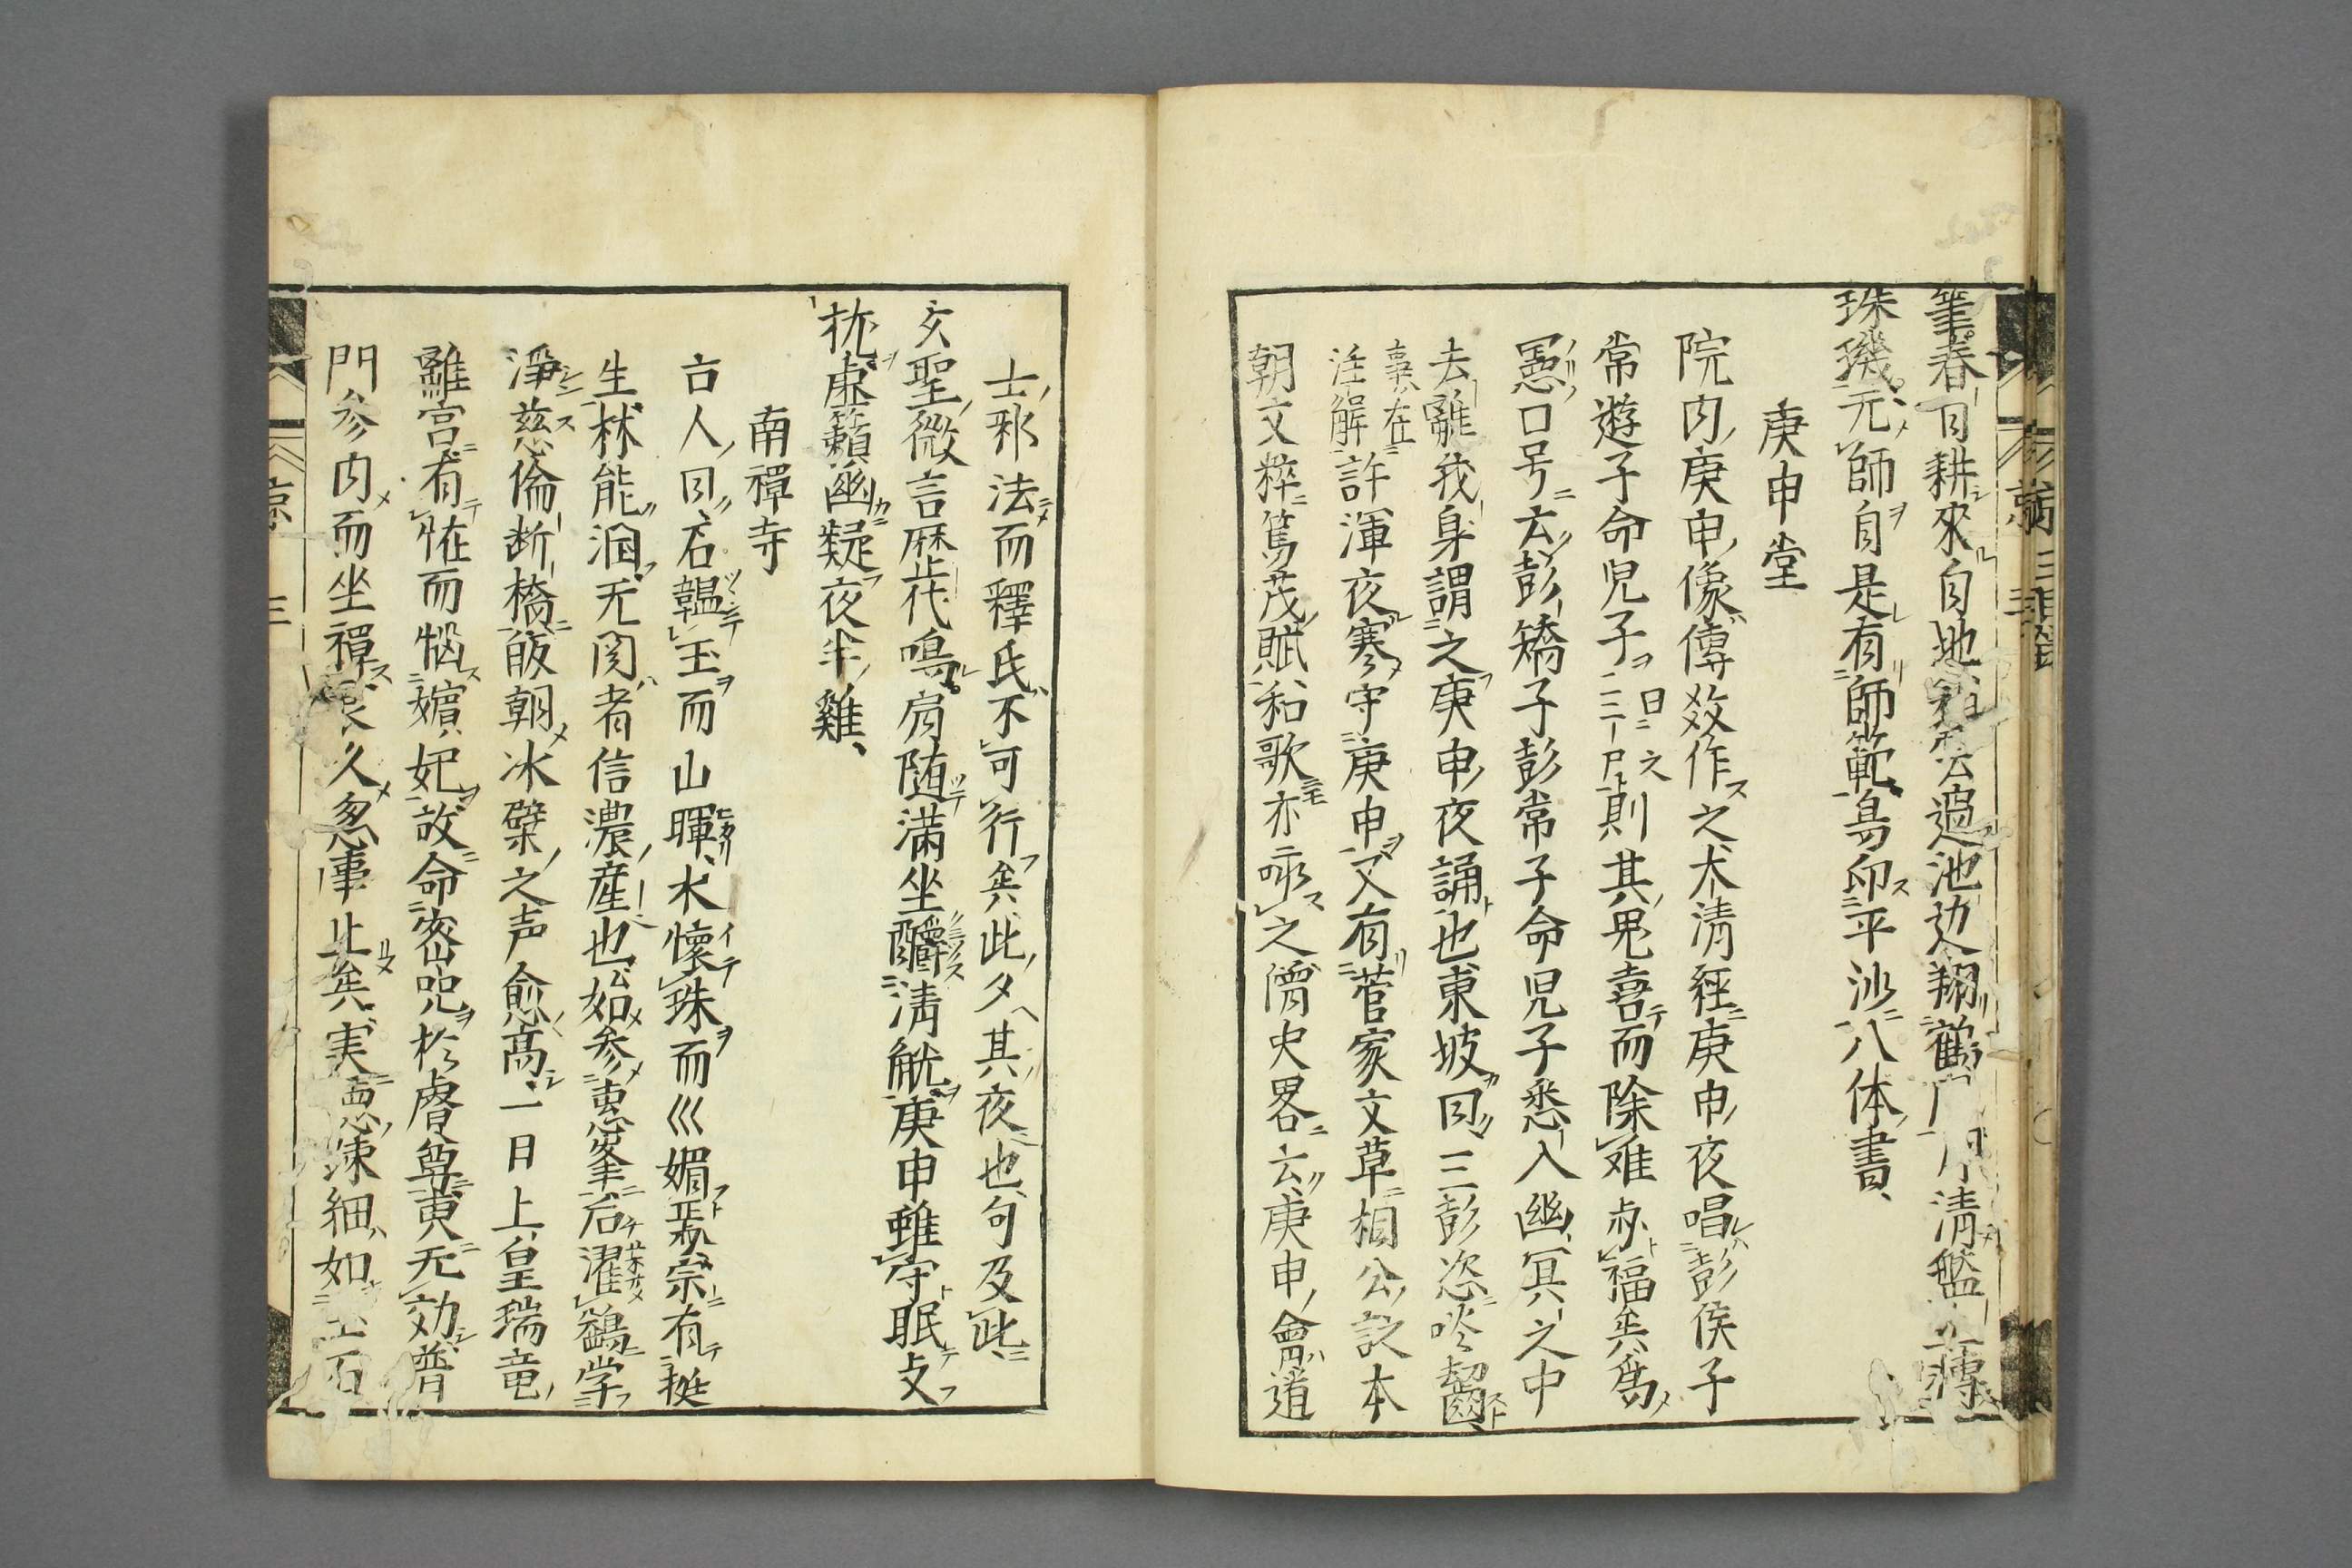 筆春百耕來自地過池边翔鶴清
珠璣元師自是有師範鳥印平沙八体書
庚申堂
院内庚申像傳教作之大清経庚申夜唱彭侯子
常遊子命児子則其鬼喜而除难赤福矣為
悪口号云彭矯子彭常子命児子悉入幽冥之中
去離我身謂之庚申夜誦也東坡曰三彭恣啖齧
事在
注解
許渾夜寒守庚申又有菅家文草相公訳本
朝文粹篤茂賦和歌亦詠之僧史畧云庚申會道
士邪法而釋氏不可行矣此夕其夜也句及此
文聖微言歴代鳴肩随満坐釂清觥庚申雖守眠支
枕虚籟幽疑夜半雞
南禅寺
古人曰石韞玉而山暉水懐珠而巛媚眾宗有挺
生林能涵无関者信濃産也始参恵峯后濯鷁学
淨慈倫断橋皈朝冰檗之声愈高一日上皇瑞竜
離宮有恠而惱嬪妃故命密呪於睿尊更无効普
門参内而坐禅久忽事止矣実恵練細如石